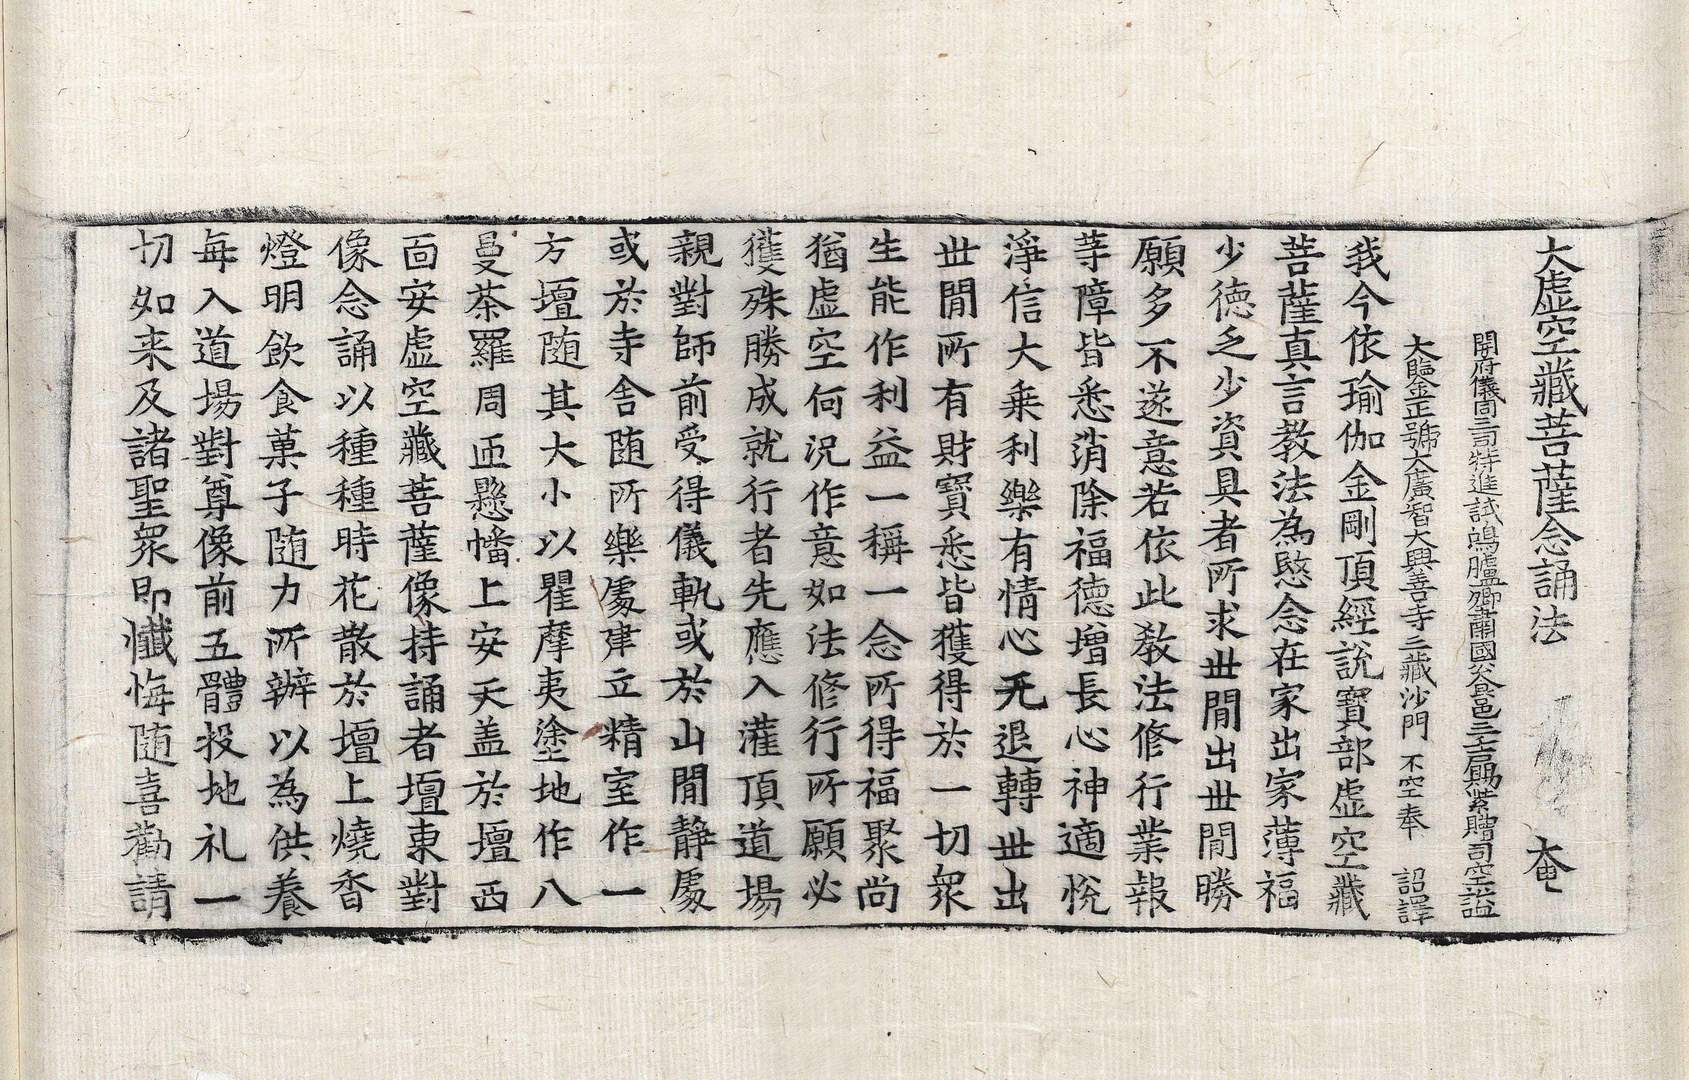 大虛空藏菩薩念誦法 奄
開府儀同三司特進試鴻臚卿肅國公食邑三千戶賜紫贈司空謚
大臨金正號大廣智大興善寺三藏沙門 不空奉 詔譯
我今依瑜伽金剛頂經說寶部虛空藏
菩薩真言教法為愍念在家出家薄福
少德乏少資具者所求世間出世間勝
願多不遂意若依此教法修行業報
等障皆悉消除福德增長心神適悅
淨信大乘利樂有情心无退轉世出
世間所有財寶悉皆獲得於一切眾
生能作利益一稱一念所得福聚尚
猶虛空何況作意如法修行所願必
獲殊勝成就行者先應入灌頂道場
親對師前受得儀軌或於山間靜處
或於寺舍随所樂處建立精室作一
方壇随其大小以瞿摩夷塗地作八
曼荼羅周匝懸幡上安天盖於壇西
面安虛空藏菩薩像持誦者壇東對
像念誦以種種時花散於壇上燒香
燈明飲食菓子随力所辦以為供養
每入道場對尊像前五體投地礼一
切如来及諸聖眾即懺悔随喜勸請